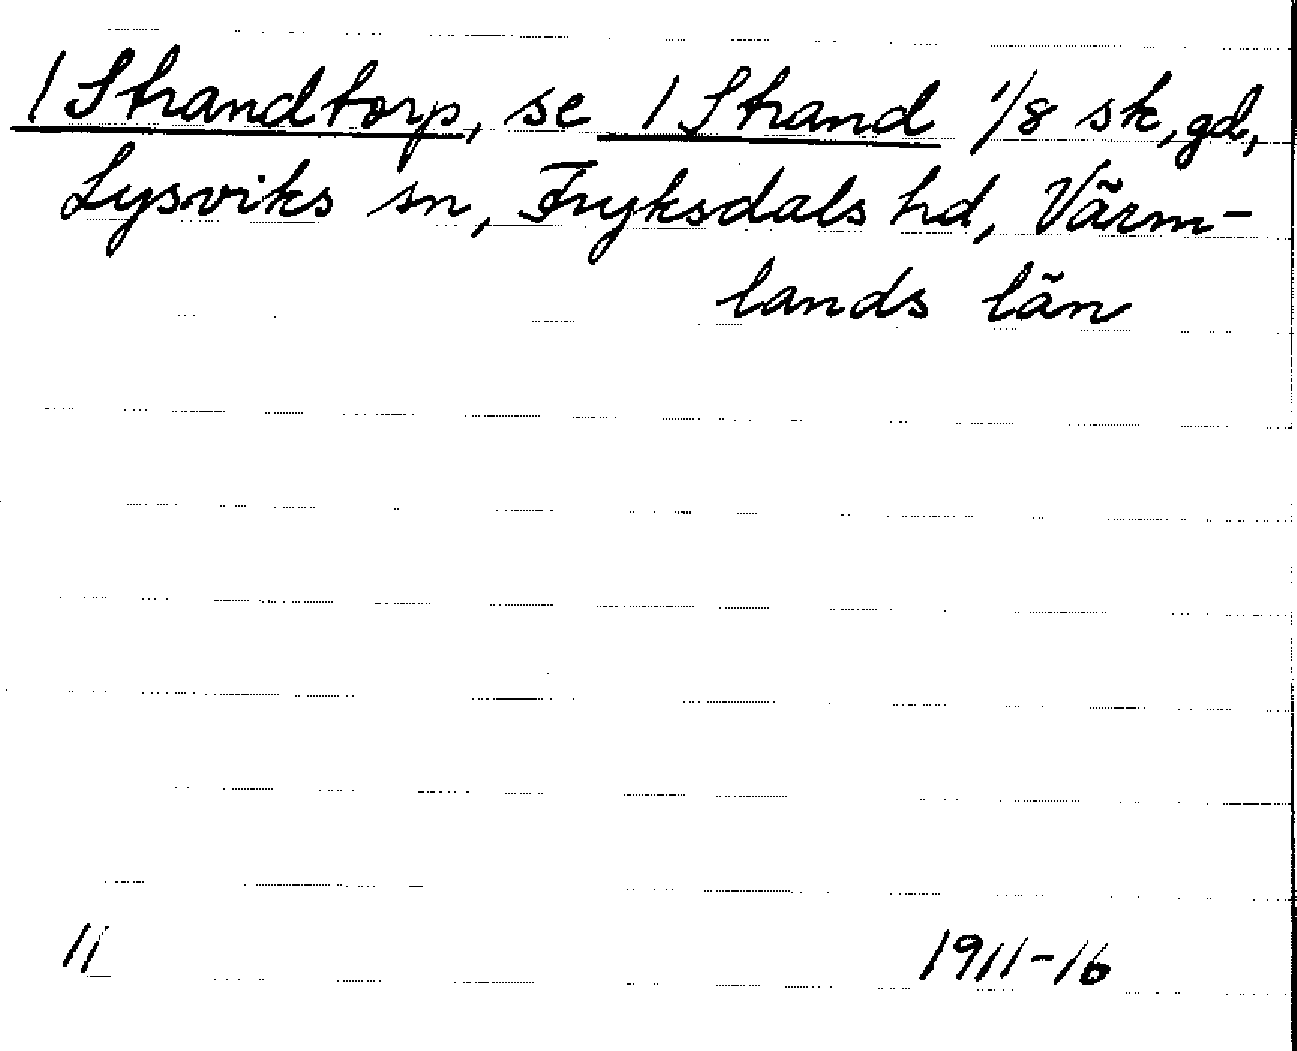 1 Strandtorp, se 1 Strand 1/8 sk, gd,
Lysviks sn, Fryksdals hd, Värm-
lands län
11
1911-16